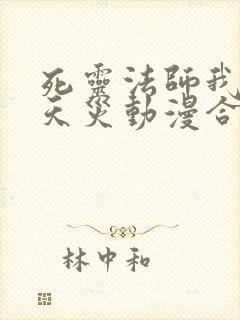 死靈法師我
天災動漫合
林中和